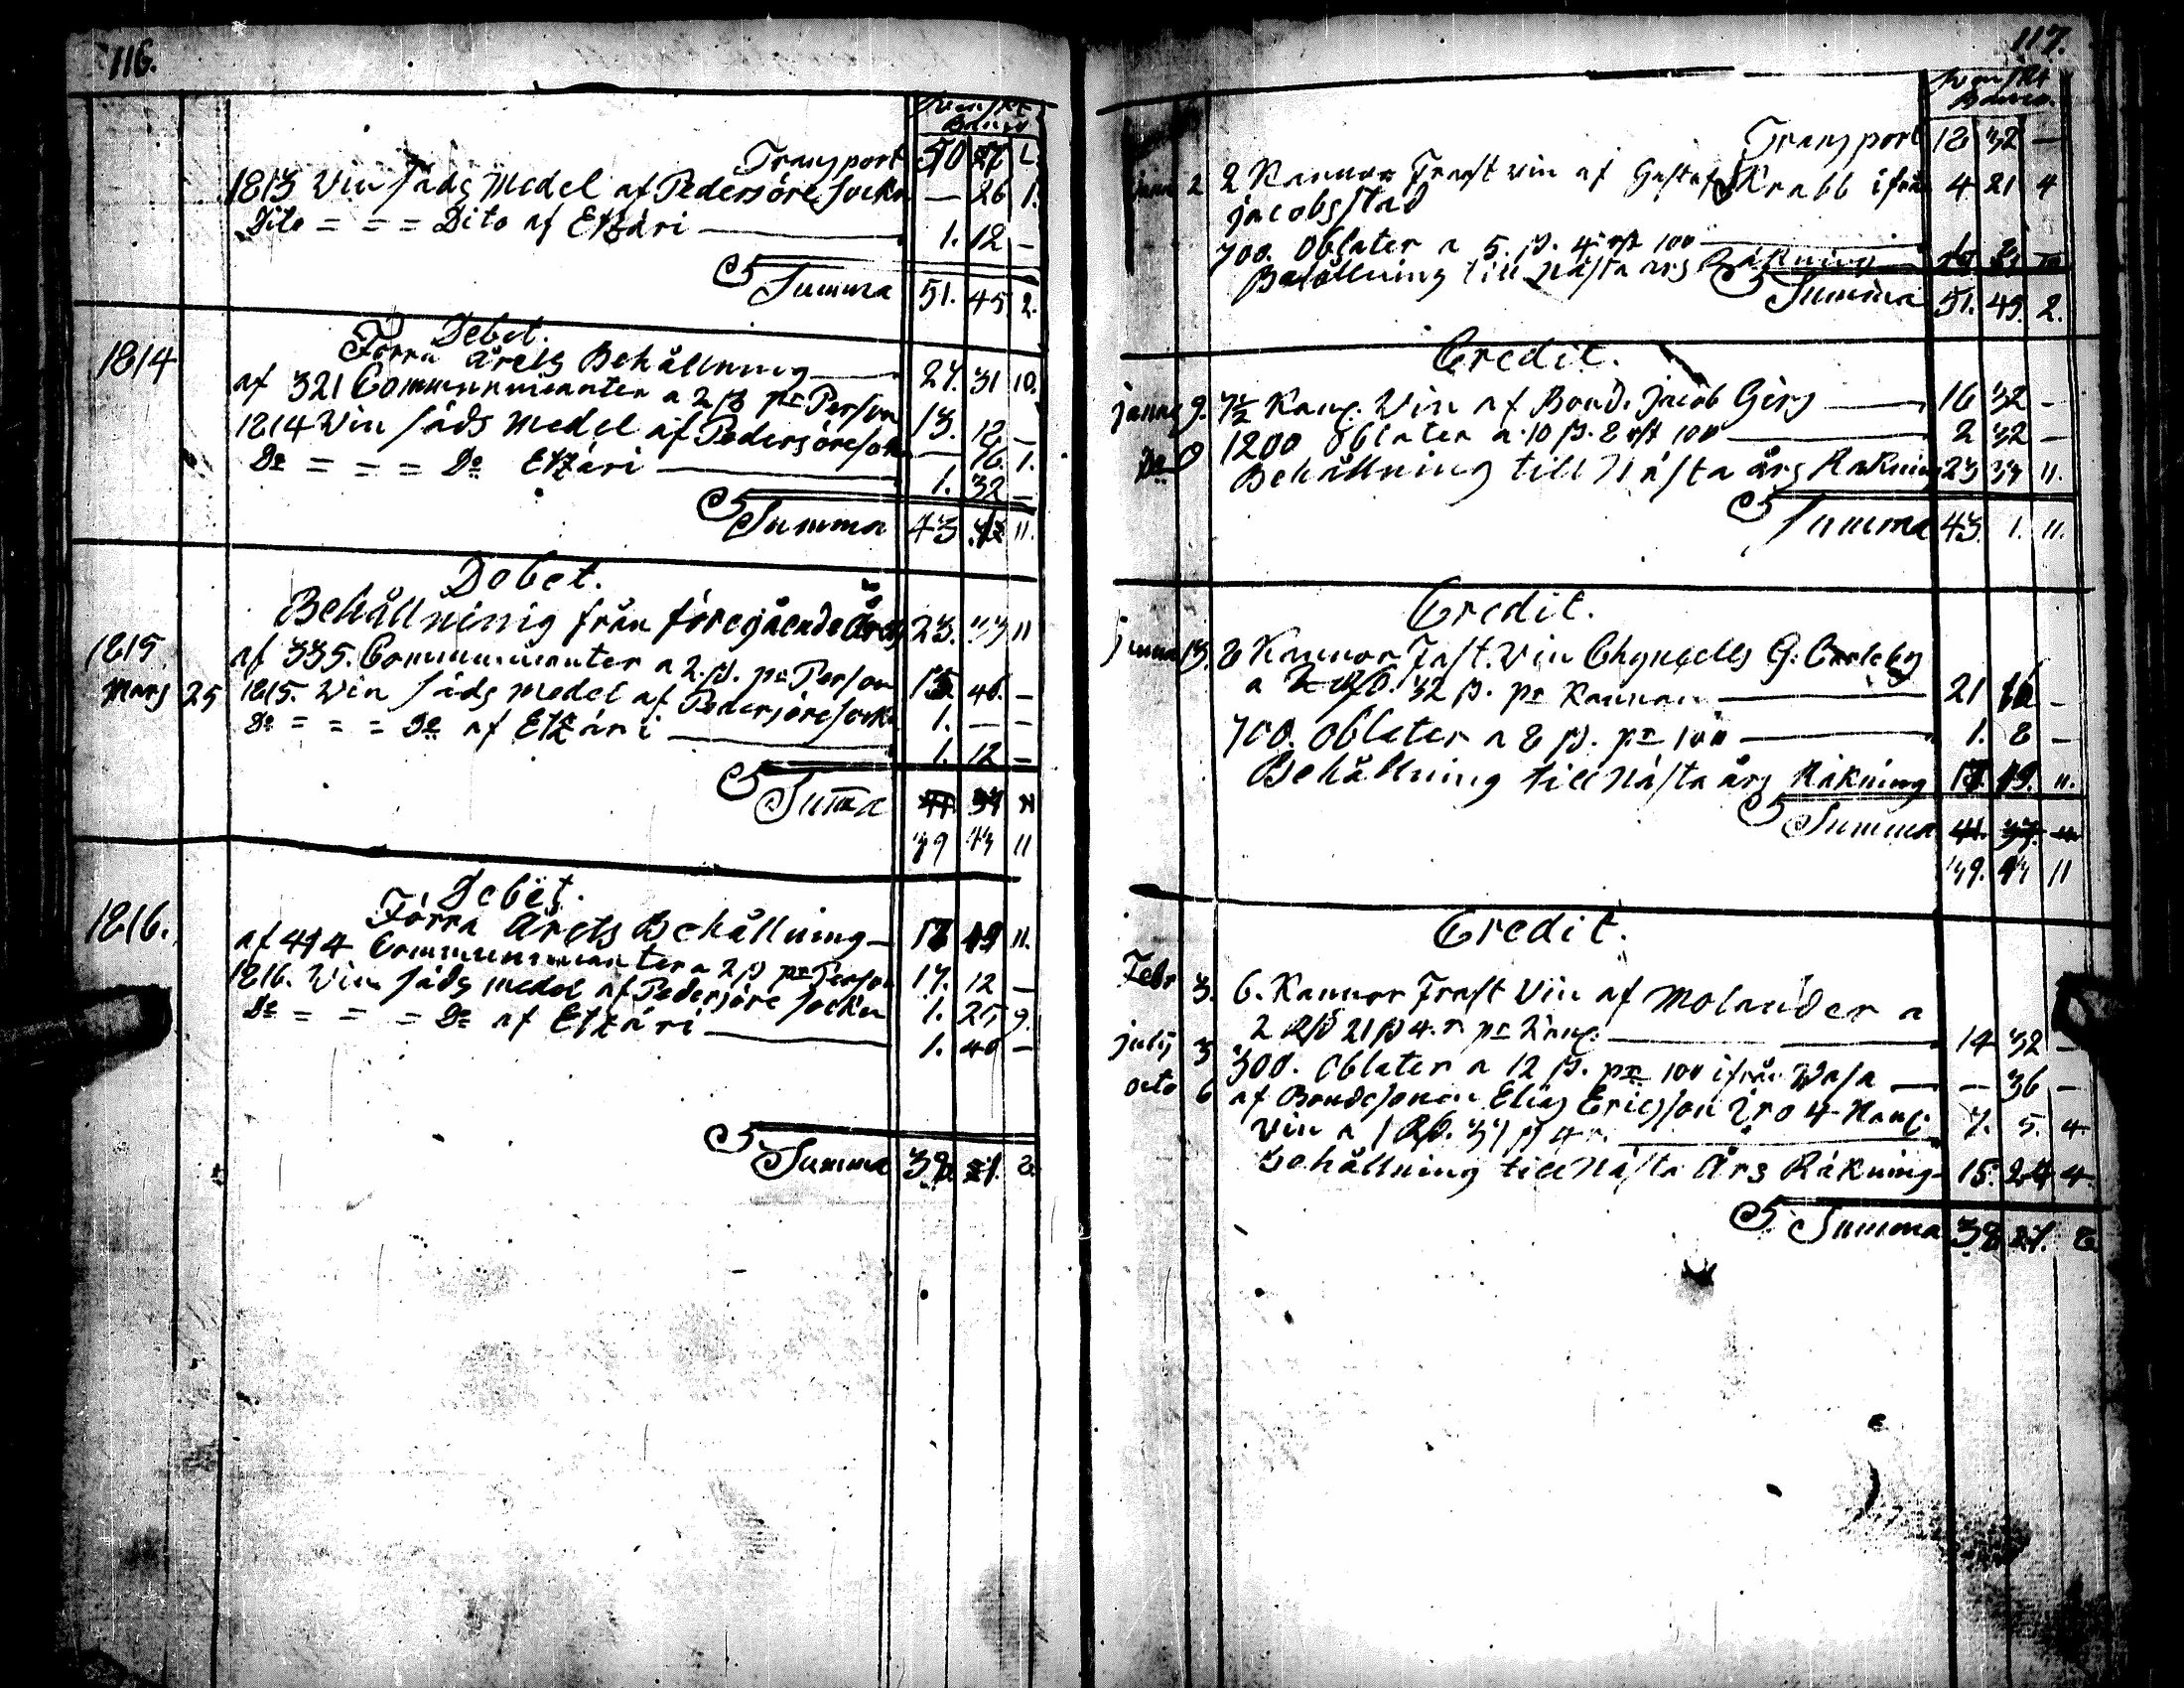 116.
Transport 50
1813 Vin sädsMedel af Pedersöre Sockn — 26 1.
Dito = = = Dito af Etzäri — 1. 12 —
Summa 51. 45 2.
1814
Debet.
Förra Årets Behållning — 27. 31 10.
af 321 Communicanter a 2 ß pr Person 13. 18 —
1814 Vin säds Medel af Pedersöre — 16. 1.
Do = = = Do Etzäri — 1. 32 —
Summa 43 11.
Debet.
Behållning från föregående Året 23. 33 11
1815.
af 335. Communicanter a 2. ß. pr Person 46. —
Mars 25 1815. Vin säds medel af Pedersöre Sockn 1. — —
Do = = = Do af Etzäri — 1. 12 —
Summa
39 43 11
Debet.
1816.
Förra Årets Behållning — 11.
af 414 Communicanter a 2 ß pr Person 17. 12 —
1816. Vin säds medel af Pedersöre Socken 1. 25 9.
Do = = = Do af Etzäri — 1. 40 —
Summa 38. 8.
117.
Banco.
Transport 18 32 —
2 2 Kannor Franst vin af Gustaf Krabb ifrån 4 21 4
jacobsstad
700. Oblater a 5. ß. 4 rst 100 —
Behållning till Nästa års Räkning
Summa 51. 45. 2.
Credit.
9. 7½ Kann. Vin af Bond. Jacob Gers — 16 32 —
Do 1200 Oblater a 10 ß. 8 rst 100 — 2 32 —
Behållning till Nästa års Räkning 23 33 11.
Summa 43. 1. 11.
Credit.
13. 8 Kannor Fast. Vin G. Carleby
a 32 ß. pr Kannan — 21 16 —
700. Oblater a 8 ß. pr 100 — 1. 8 —
Behållning till Nästa års Räkning 17. 19. 11.
Summa
39. 43 11
Credit.
Febr 3. 6. Kannor Franst Vin af Molander a
2 Rd 21 ß 4. r pr Kann. — 14 32 —
julij 3 300. Oblater a 12 ß. pr 100 ifrån Wasa — — 36 —
octo 6 af Bondesonen Elias Ericsson 4 Kann.
Vin a 1 Rd. 37 ß 4 r. — 7. 5. 4.
Behållning till Nästa Års Räkning — 15. 24 4.
Summa 38 8.